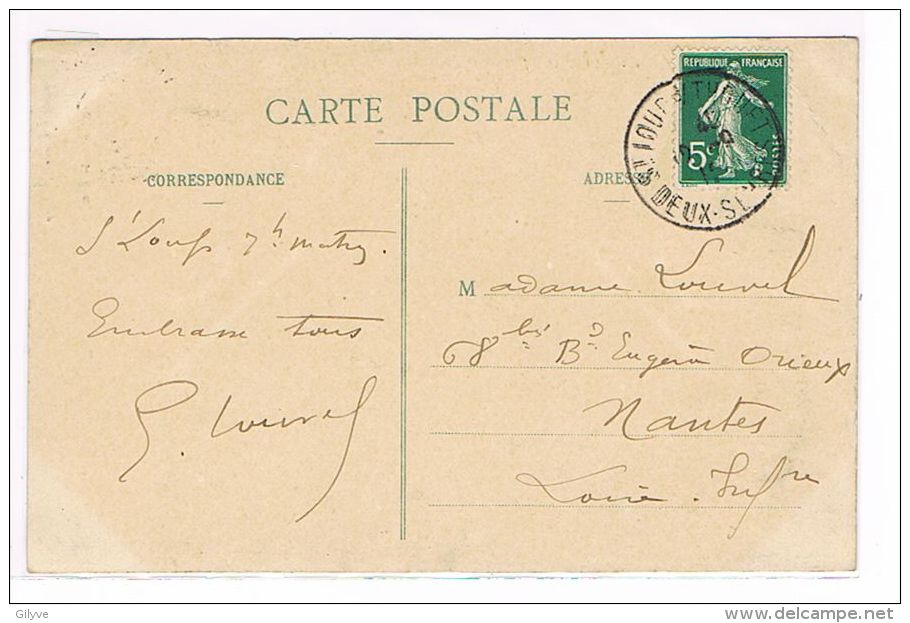 CARTE POSTALE
REPUBLIQUE FRANÇAISE
5c
DEUX-S
CORRESPONDANCE
ADRESSE
St Loup 7h
Embrasse tous
E. Louvel
Madame Louvel
68 bis Bd Eugène Orieux
Nantes
Loire. Infre
Gilyve
www.delcampe.net